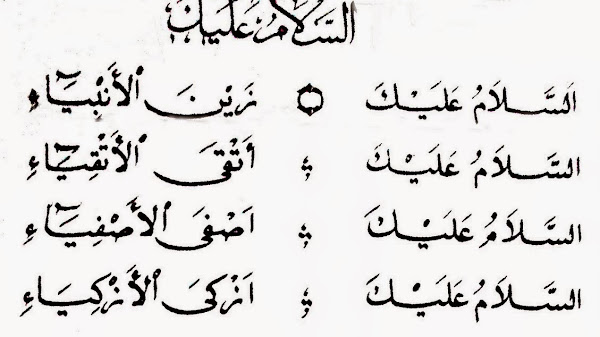 السَّلَامُ عَلَيْكَ
اَلسَّلَامُ عَلَيْكَ ۞ زَيْنَ الْأَنْبِيَآءِ
السَّلَامُ عَلَيْكَ ؞ أَتْقَى الْأَتْقِيَآءِ
السَّلَامُ عَلَيْكَ ؞ اَصْفَى الْأَصْفِيَآءِ
السَّلَامُ عَلَيْكَ ؞ اَزْكَى الْأَزْكِيَاءِ